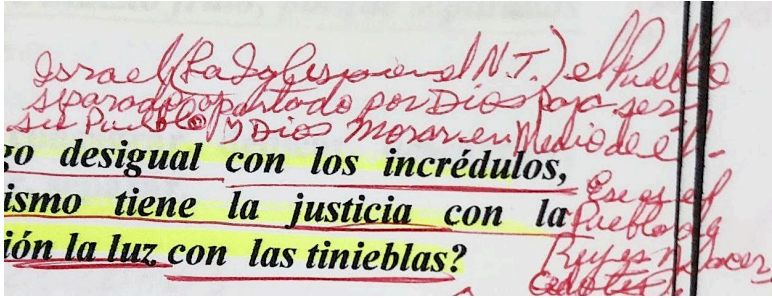 Israel (La Iglesia en el N.T.) el Pueblo
separado, apartado por Dios para ser
su Pueblo y Dios Morar en Medio de él.
go desigual con los incrédulos,
ismo tiene la justicia con la
ión la luz con las tinieblas?
Ese es el
Pueblo de
Reyes y Sacer
dotes.